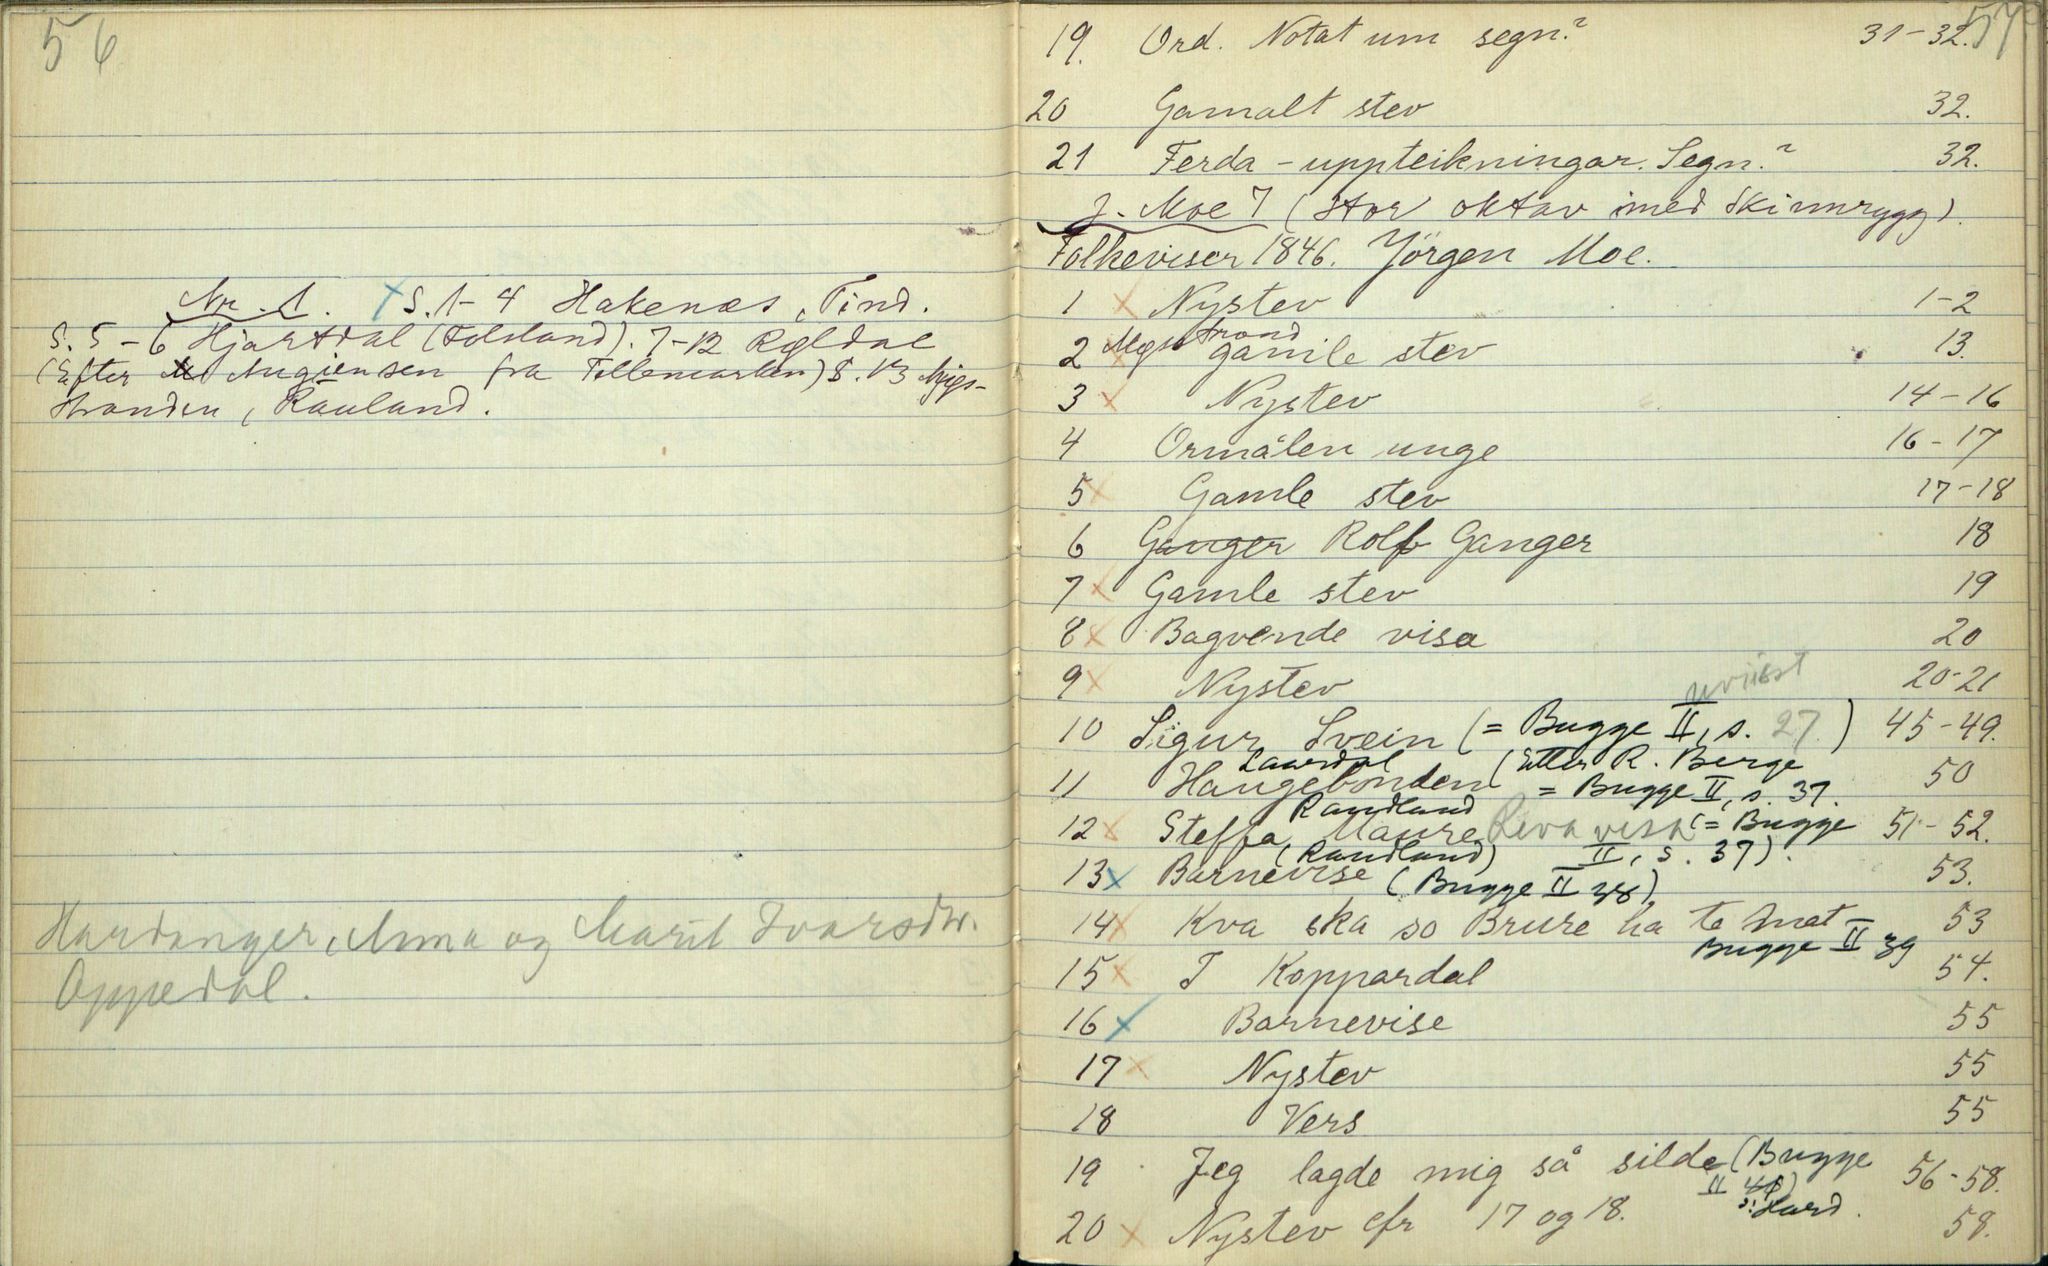 56
Nr. 1. x S. 1-4 Hakenæs, Tind.
S. 5-6 Hjartdal (Folsland). 7-12
(Efter fra Tellemarken) S. 13 Mjøs-
stranden, Rauland.
Hardanger, og Marit Ivarsdtr.
Oppedal.
57
19. Ord. Notat um segn.? 31-32.
20 Gamalt stev 32.
21 Ferda-uppteikningar. Segn.? 32.
J. Moe 7 (stor oktav med skinnrygg).
Folkeviser 1846. Jörgen Moe.
1 x Nystev 1-2
2 x gamle stev 13.
3 x Nystev 14-16
4 Ormålen unge 16-17
5 x Gamle stev 17-18
6 Ganger Rolf Ganger 18
7 x Gamle stev 19
8 x Bagvende visa 20
9 x Nystev 20-21
uvisst
10 Sigur Svein (= Bugge II, s. 27) 45-49.
Laurdal (Etter R. Berge
11 Haugebonden = Bugge II, s. 37. 50
Randland
12 x Steffa Maure Reva visa (= Bugge 51-52.
(Randland) II, s. 37).
13 x Barnevise (Bugge II 38) 53.
14 x Kva ska so Brure ha te mat- 53
Bugge II 39
15 x I Koppardal 54.
16 x Barnevise 55
17 x Nystev 55
18 Vers 55
19 Jeg lagde mig så silde (Bugge 56-58.
II 41)
Hard.
20 x Nystev cfr 17 og 18. 58.